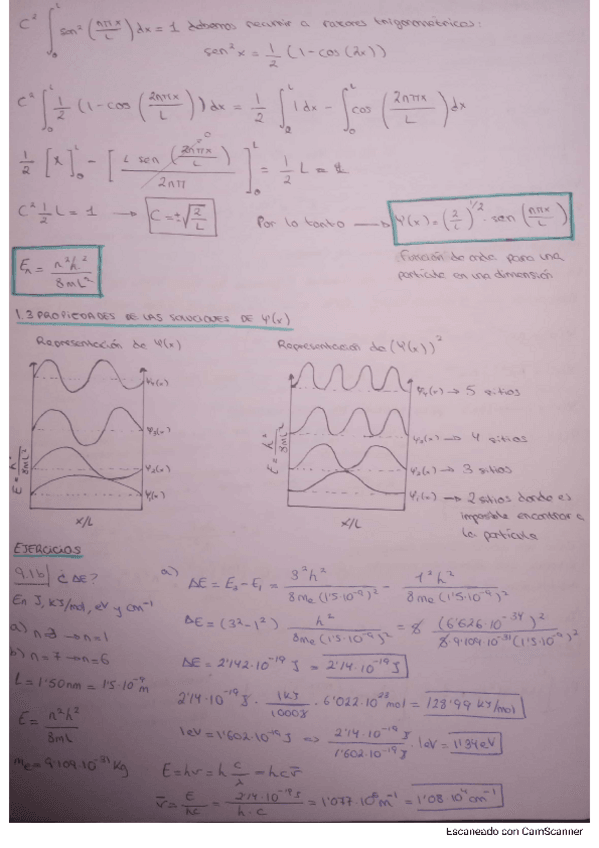 C² ∫₀ᴸ sen² (nπx/L) dx = 1 debemos recurrir a razones trigonométricas:
sen²x = 1/2 (1-cos(2x))
C² ∫₀ᴸ 1/2 (1-cos (2nπx/L)) dx = 1/2 ∫ 1dx - ∫₀ᴸ cos (2nπx/L) dx
1/2 [x]₀ᴸ - [L sen (2nπx/L) / 2nπ]₀ᴸ = 1/2 L
C² 1/2 L = 1 → C = ±√(2/L) Por lo tanto → Ψ(x) = (2/L)^1/2 · sen (nπx/L)
Función de onda para una
partícula en una dimensión
Eₙ = n²h²/8mL²
1.3 PROPIEDADES DE LAS SOLUCIONES DE Ψ(x)
Representación de Ψ(x) Representación de (Ψ(x))²
Ψ₄(x) Ψ₄(x) → 5 sitios
Ψ₃(x) Ψ₃(x) → 4 sitios
Ψ₂(x) Ψ₂(x) → 3 sitios
Ψ₁(x) Ψ₁(x) → 2 sitios donde es
imposible encontrar a
la partícula
E = h²/8mL² E = h²/8mL²
x/L x/L
EJERCICIOS
9.1b) ¿ΔE?
En J, KJ/mol, eV y cm⁻¹
a) n=3 → n=1
b) n=7 → n=6
L = 1'50nm = 1'5·10⁻⁹ m
E = n²h²/8mL
mₑ = 9'109·10⁻³¹ Kg
a) ΔE = E₃ - E₁ = 3²h²/8mₑ(1'5·10⁻⁹)² - 1²h²/8mₑ(1'5·10⁻⁹)²
ΔE = (3²-1²) h²/8mₑ(1'5·10⁻⁹)² = 8 (6'626·10⁻³⁴)²/8·9'109·10⁻³¹(1'5·10⁻⁹)²
ΔE = 2'142·10⁻¹⁹ J = 2'14·10⁻¹⁹ J
2'14·10⁻¹⁹ J · 1KJ/1000J · 6'022·10²³ mol = 128'99 KJ/mol
1eV = 1'602·10⁻¹⁹ J => 2'14·10⁻¹⁹ J/1'602·10⁻¹⁹ J · 1eV = 1'34eV
E = hν = h c/λ = hcν̄
ν̄ = E/hc = 2'14·10⁻¹⁹ J/h·c = 1'077·10⁶ m⁻¹ = 1'08·10⁴ cm⁻¹
Escaneado con CamScanner